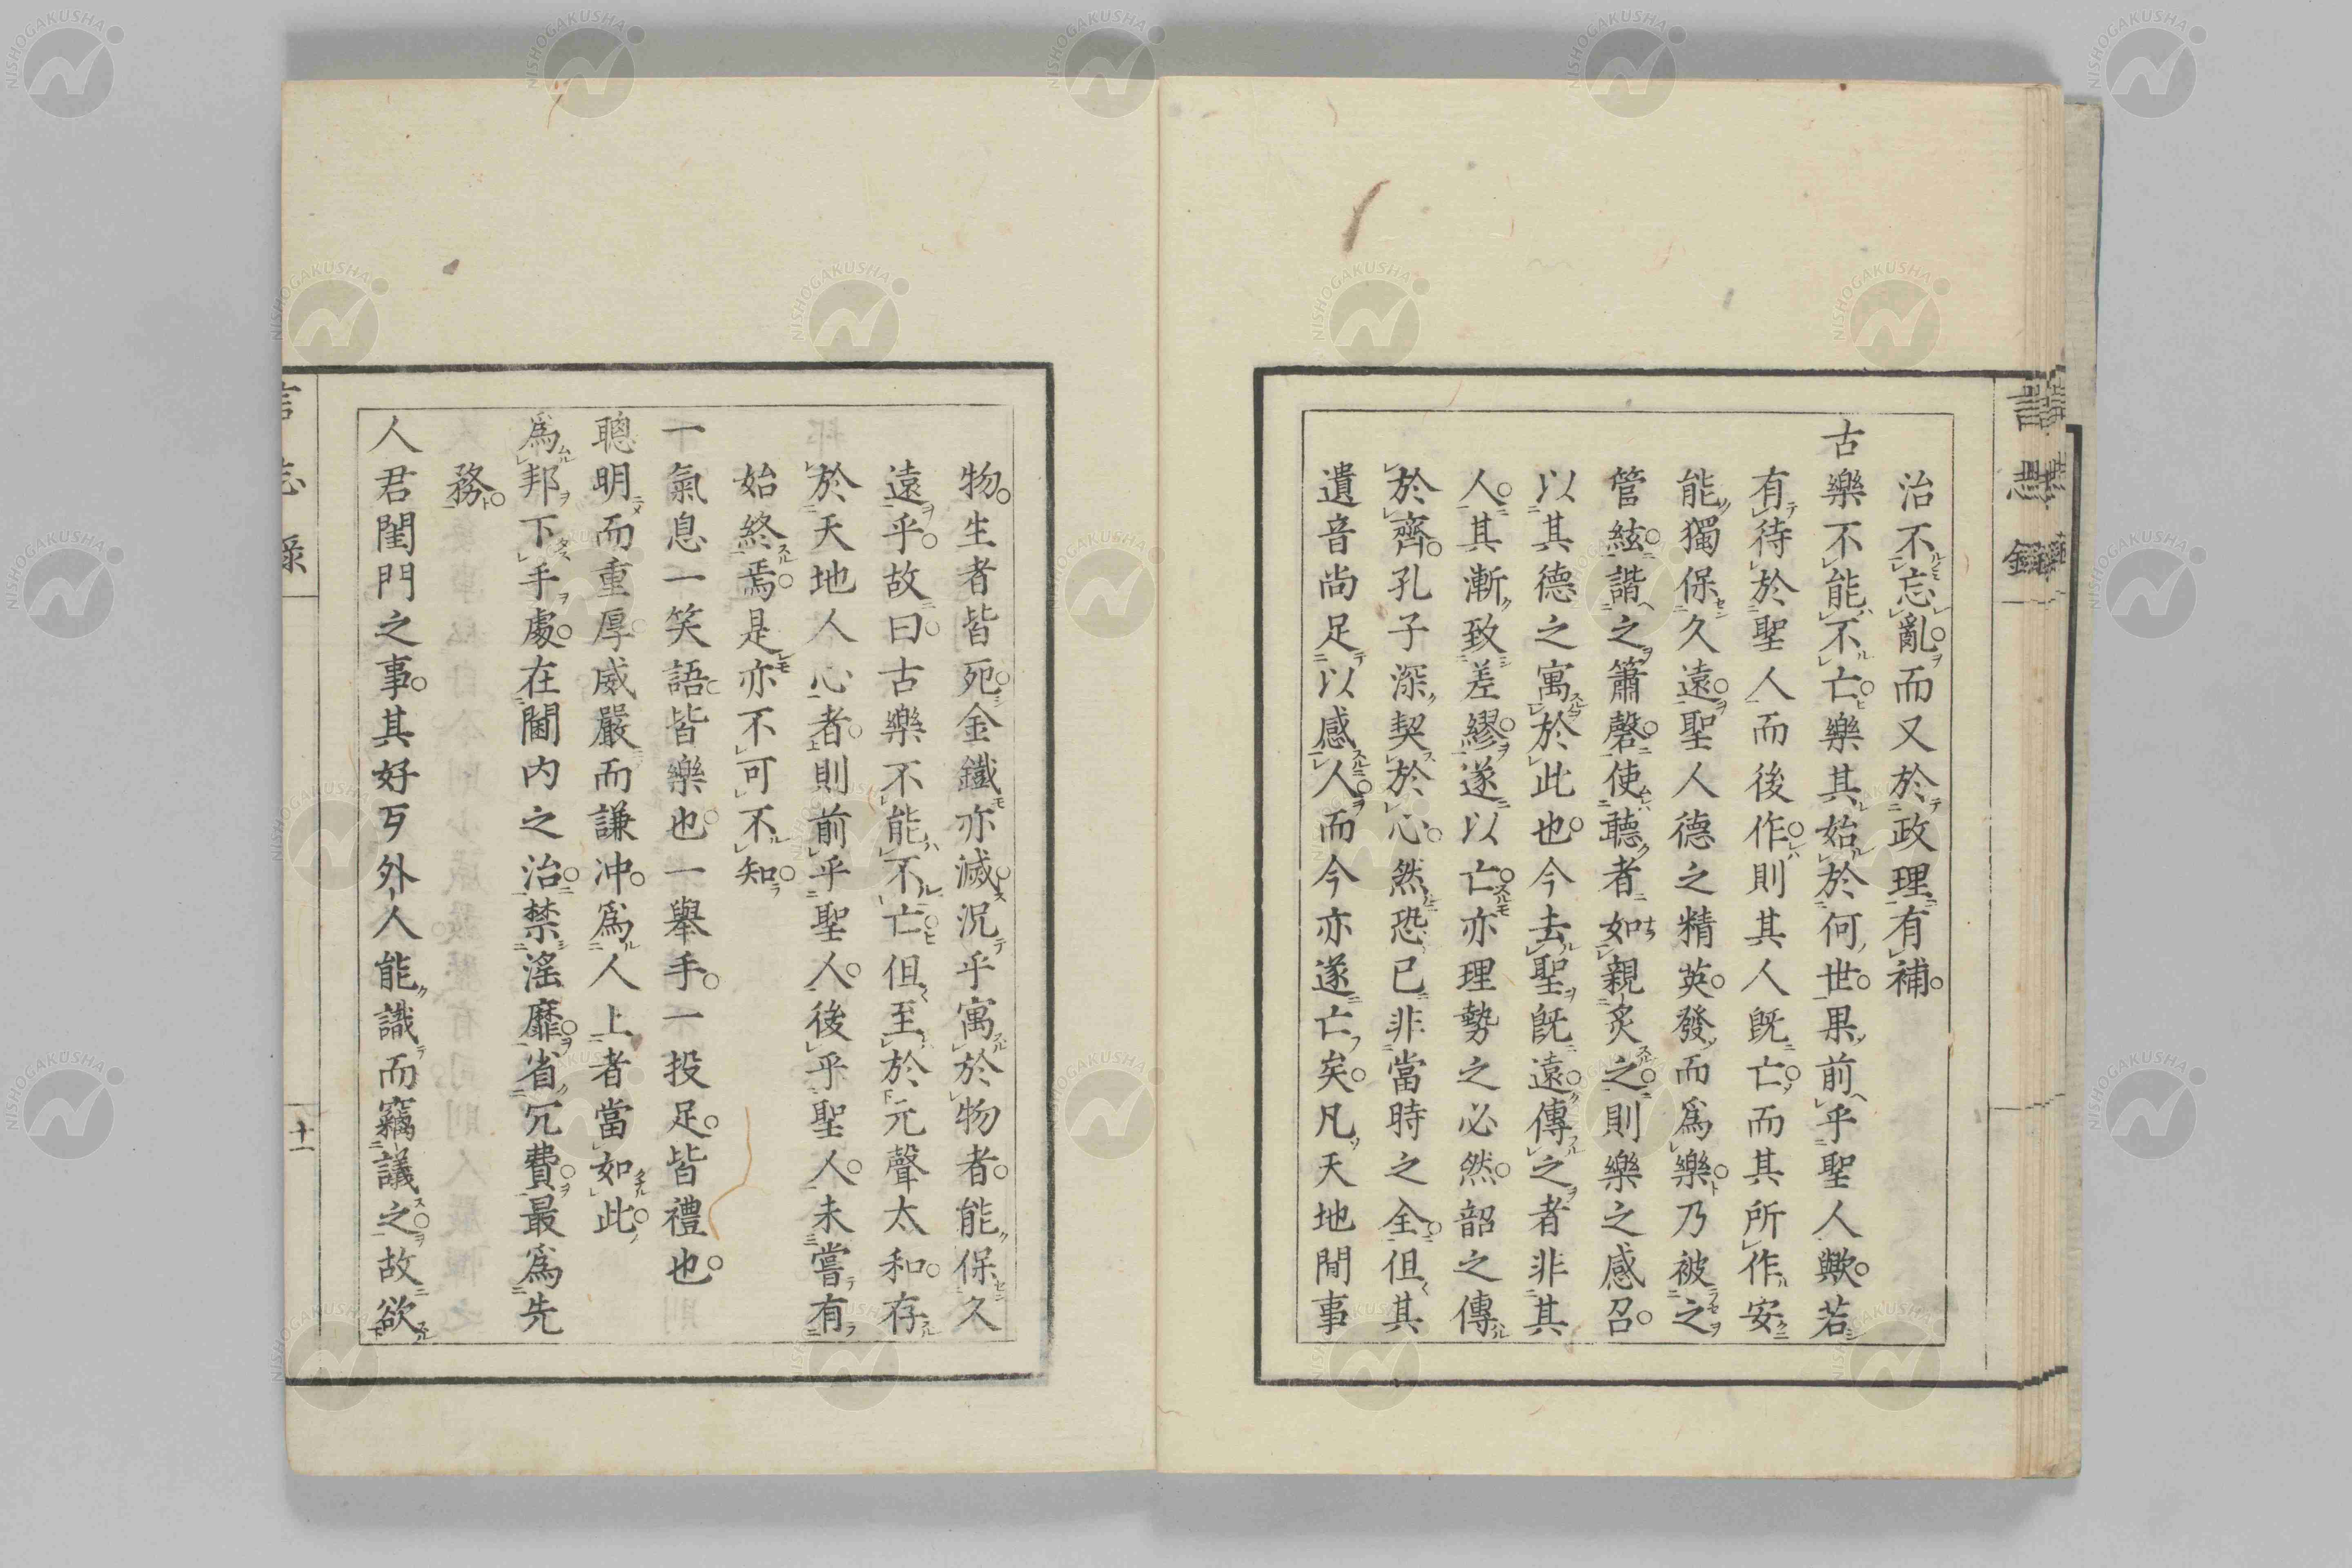 治不忘亂而又於政理有補
古樂不能不亡樂其始於何世果前乎聖人歟若
有待於聖人而後作則其人既亡而其所作安
能獨保久遠聖人德之精英發而爲樂乃被之
管絃諧之簫磬使聽者如親炙之則樂之感召
以其德之寓於此也今去聖既遠傳之者非其
人其漸致差繆遂以亡亦理勢之必然韶之傳
於齊孔子深契於心然恐已非當時之全但其
遺音尚足以感人而今亦遂亡矣凡天地間事
物生者皆死金鐵亦滅況乎寓於物者能保久
遠乎故曰古樂不能不亡但至於元聲太和存
於天地人心者則前乎聖人後乎聖人未嘗有
始終焉是亦不可不知
一氣息一笑語皆樂也一舉手一投足皆禮也
聰明而重厚威嚴而謙冲爲人上者當如此
爲邦下手處在閫内之治禁滛靡省冗費最爲先
務
人君閨門之事其好歹外人能識而竊議之故欲
十一
NISHOGAKUSHA